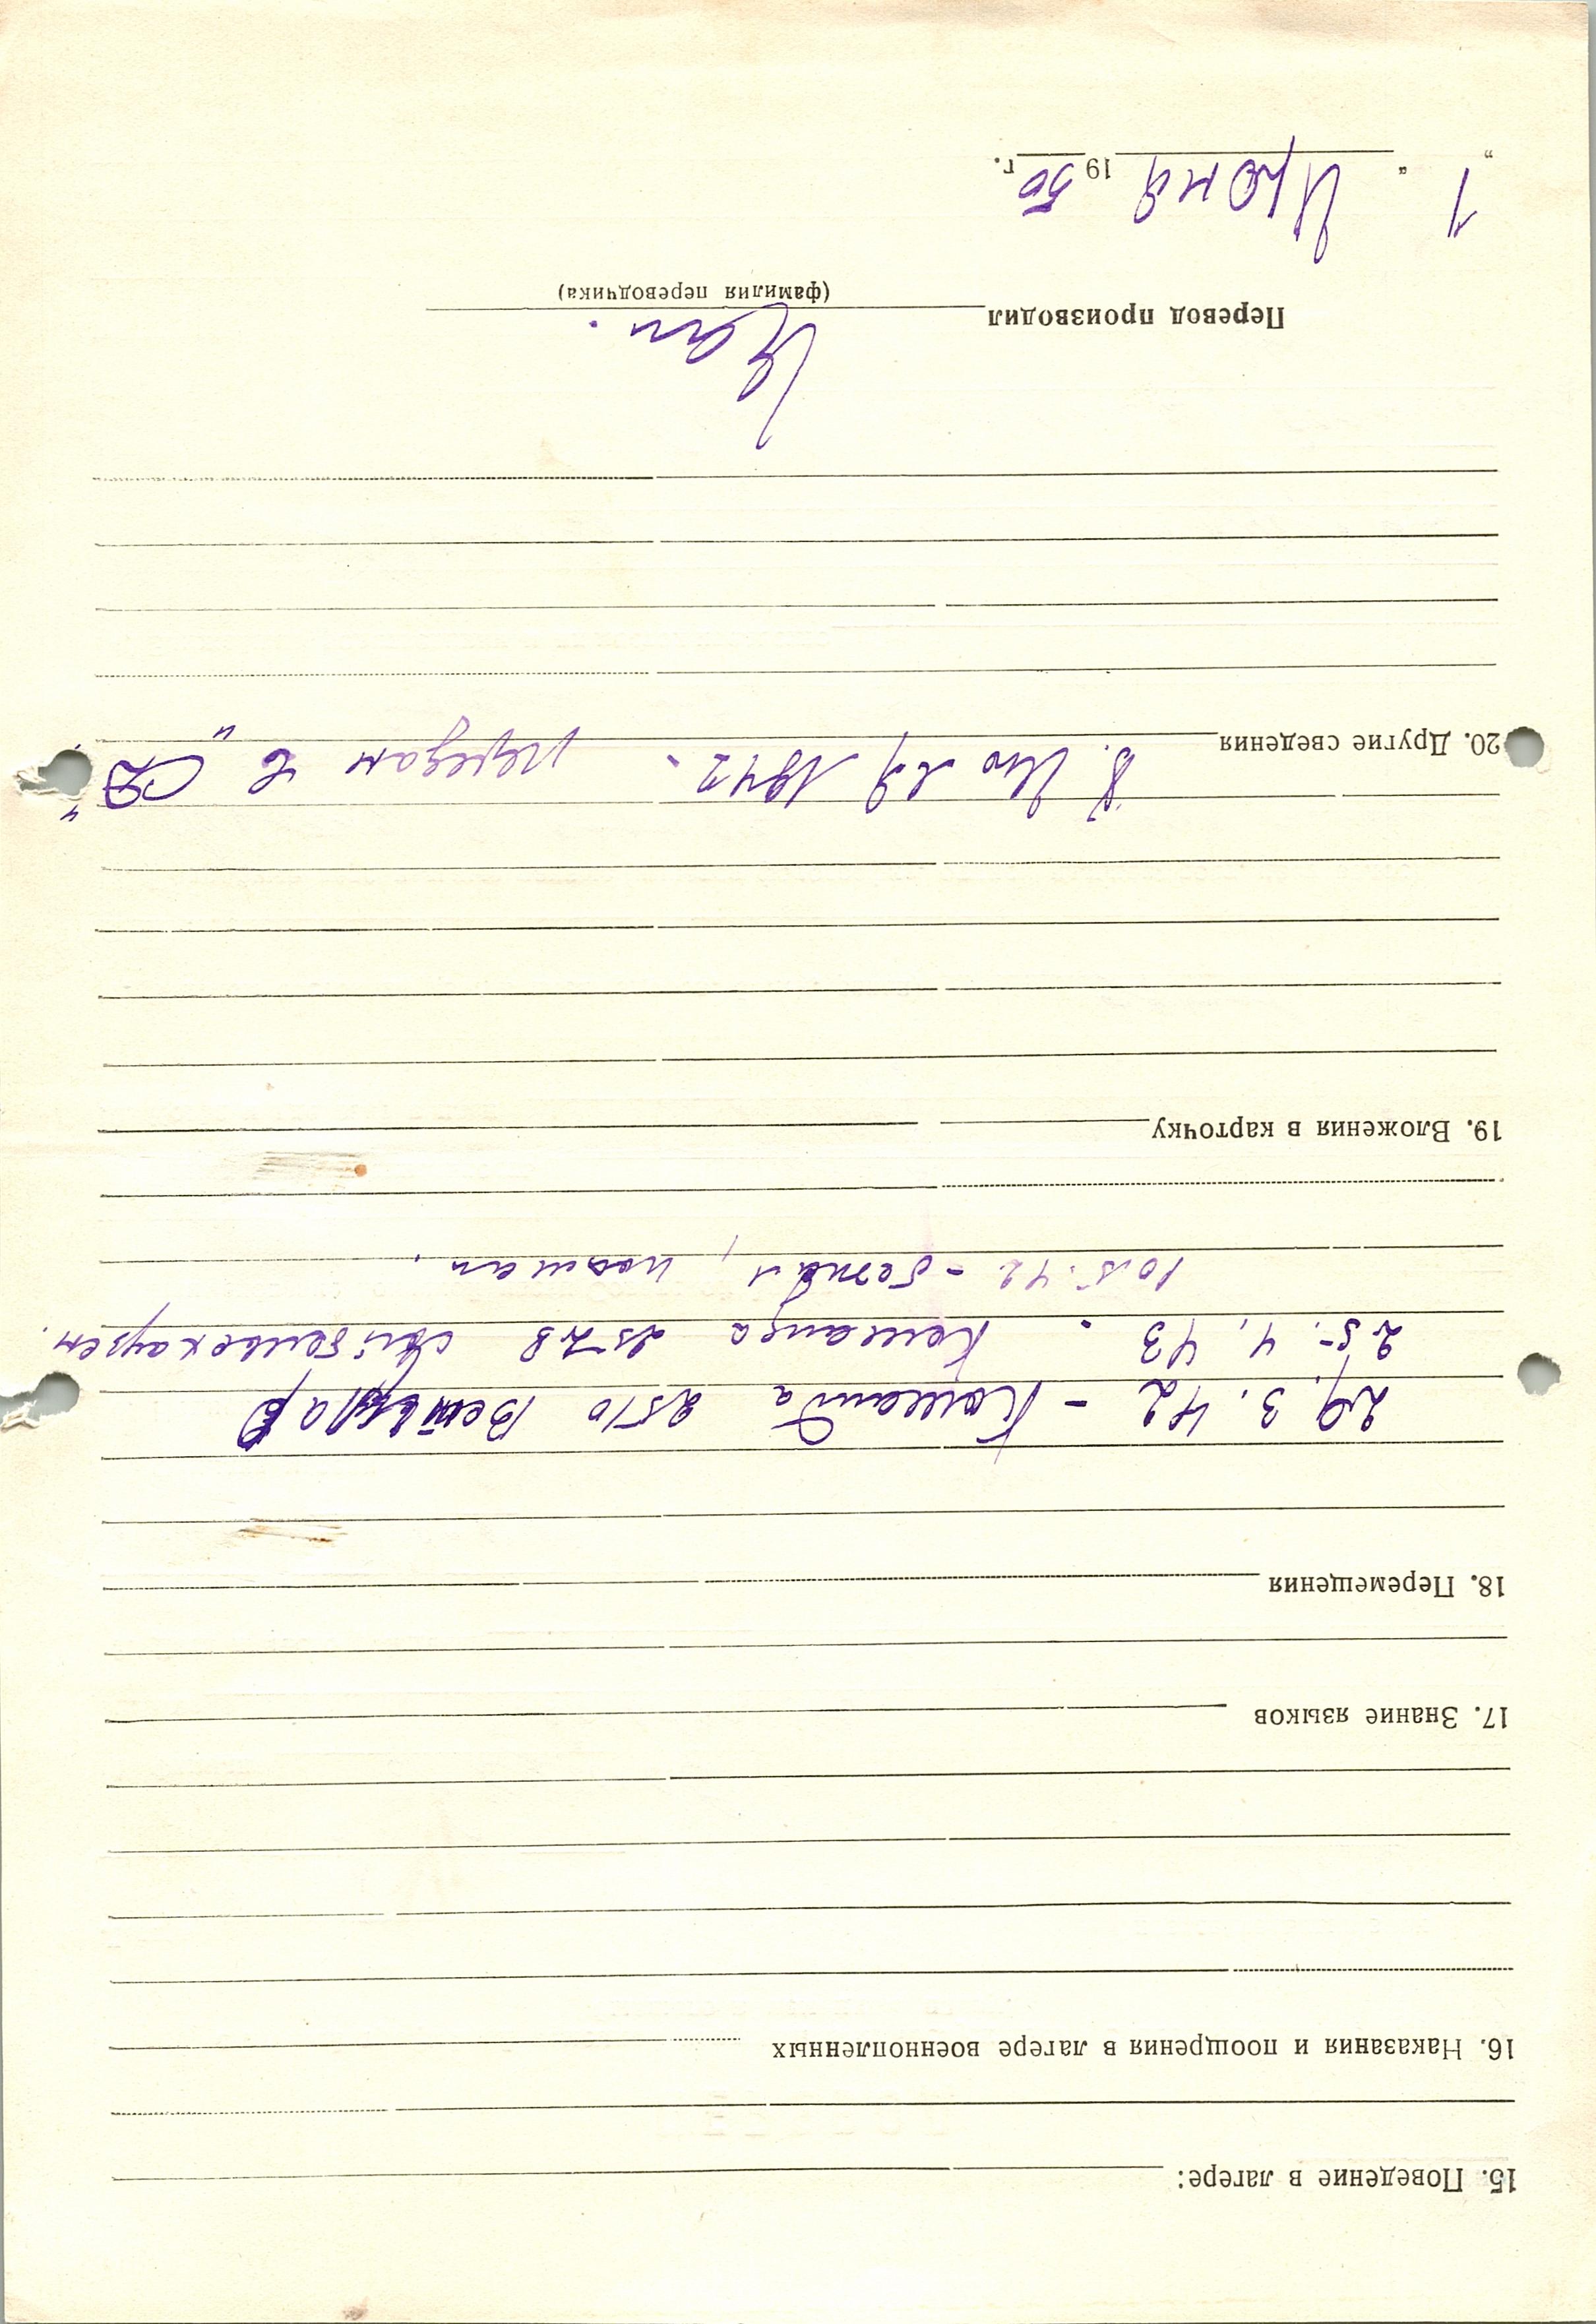 15. Поведение в лагере:
16. Наказания и поощрения в лагере военнопленных
17. Знание языков
18. Перемещения
29. 3. 42 - Команда 2510
25. 4. 43 - Команда
10.5.42 - бежал, пойман.
19. Вложения в карточку
20. Другие сведения
8. Июля 1942 - передан в „СД“
Перевод производил
(фамилия переводчика)
„1“ Июня 1950 г.